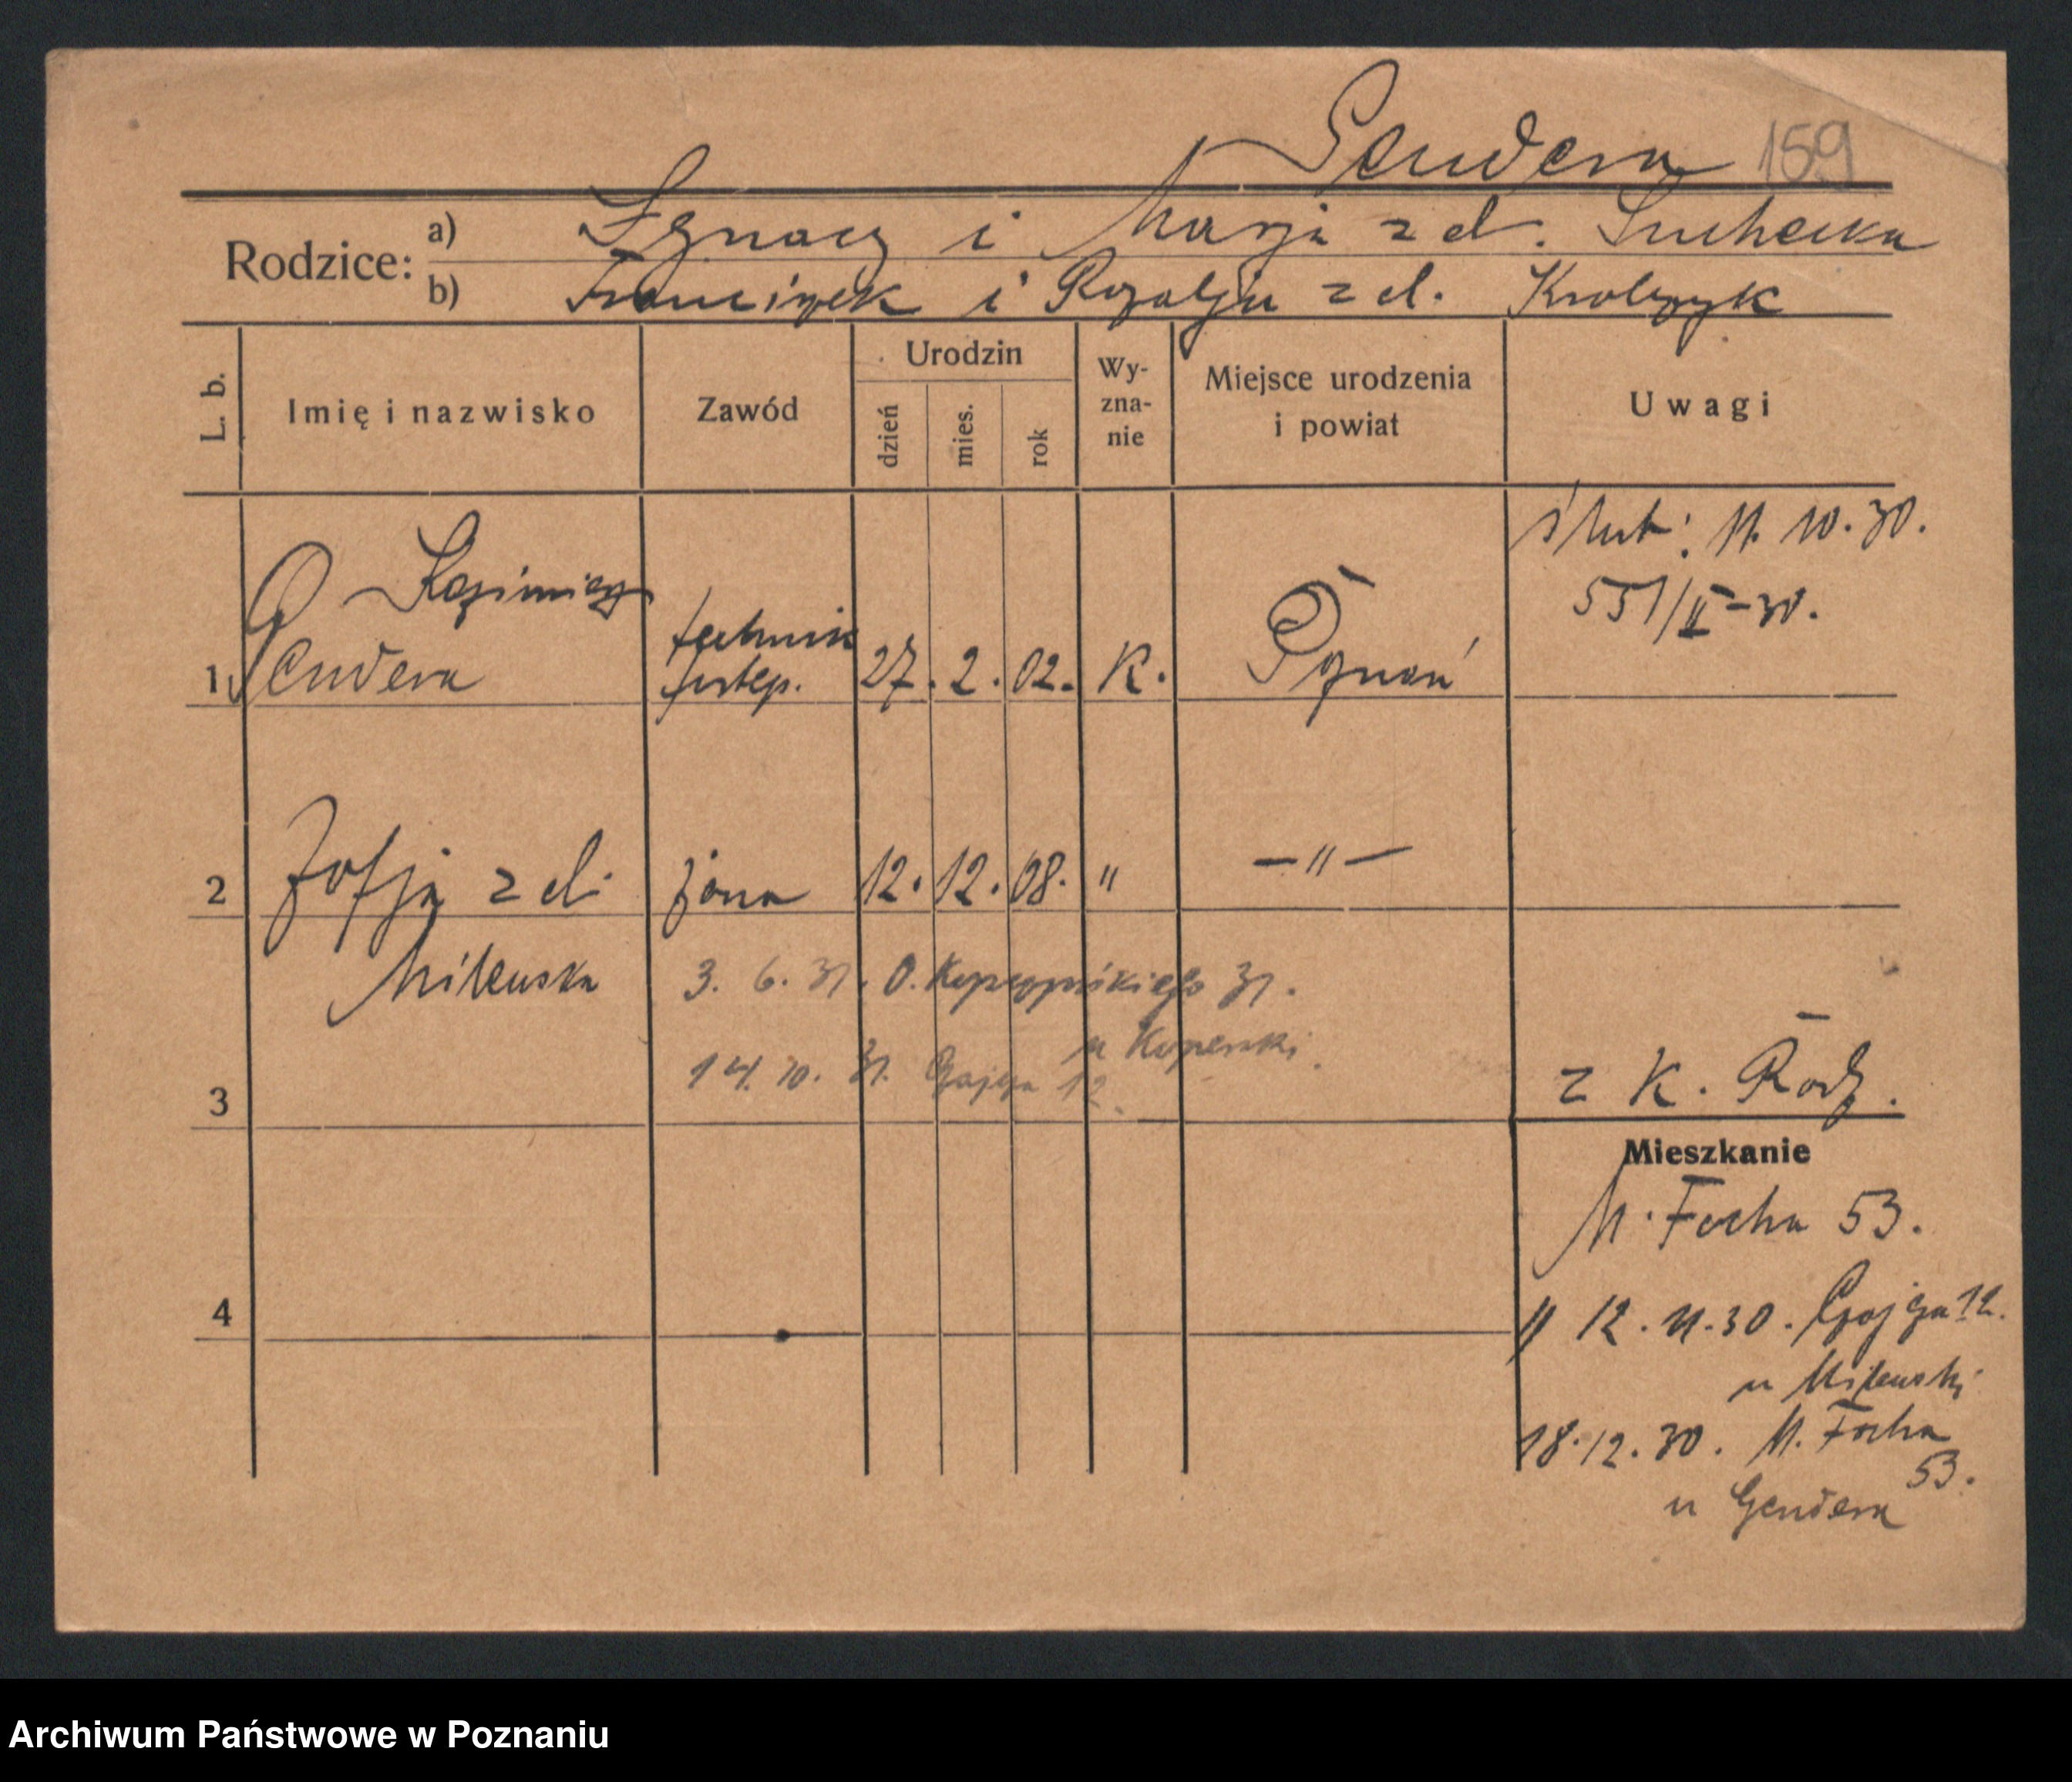 Gendera 159
Rodzice: a) Ignacy i Marja z d. Suchecka
b) Franciszek i Rozalja z d. Krolczyk
L. b. Imię i nazwisko Zawód Urodzin dzień mies. rok Wy-zna-nie Miejsce urodzenia i powiat Uwagi
ślub: 11. 10. 30.
551/II-30.
Kazimierz
1 Gendera technik 27. 2. 02. K. Poznań
2 Zofja z d. żona 12. 12. 08. " —"—
Milewska
3. 6. 31. O. Kopczyńskiego 31.
u Koperski
14. 10. 31. Gajowa 12.
3
z K. Rodz.
Mieszkanie
M. Focha 53.
4
12. 11. 30. Gajowa 12.
u Milewski
18. 12. 30. M. Focha
53.
u Gendera
Archiwum Państwowe w Poznaniu